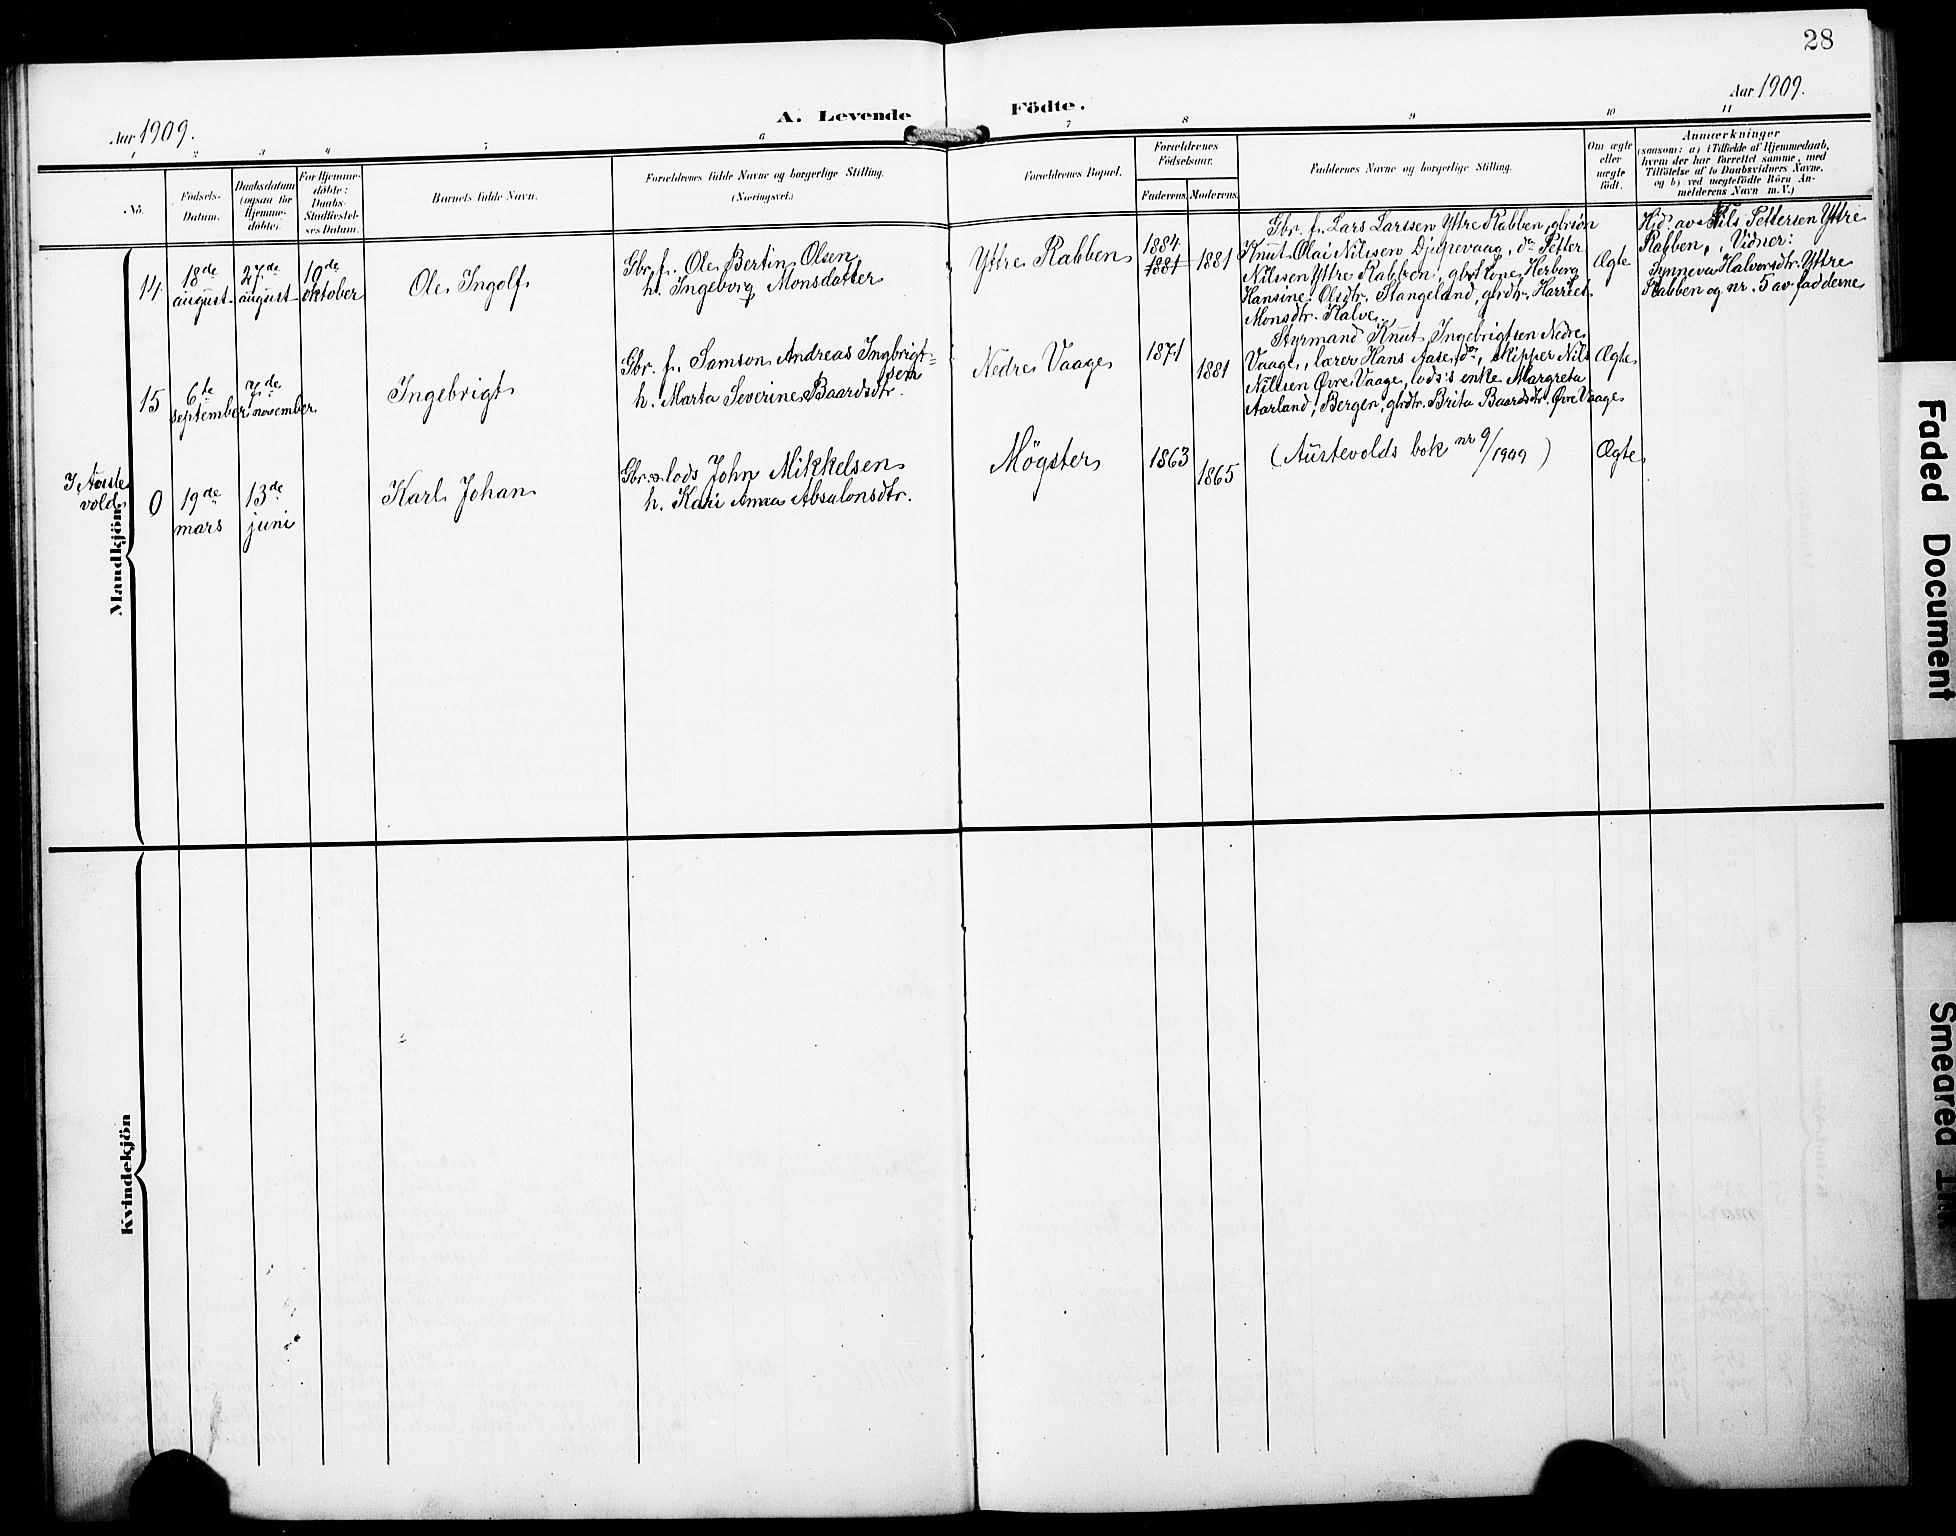 28
Aar 1909.
A. Levende Födte.
Aar 1909.
1 2 3 4 5 6 7 8 9 10 11
No.
Födsels-
Datum.
Daabsdatum
(ogsaa for
Hjemme-
döbte).
For Hjemme-
döbte:
Daabs-
Stadfæstel-
ses Datum.
Barnets fulde Navn.
Forældrenes fulde Navne og borgerlige Stilling.
(Næringsvei.)
Forældrenes Bopæl.
Forældrenes
Födselsaar.
Faderens. Moderens.
Faddernes Navne og borgerlige Stilling.
Om ægte
eller
uægte
født.
Anmærkninger
(saasom: a) i Tilfælde af Hjemmedaab,
hvem der har forrettet samme, med
Tilföielse af to Daabsvidners Navne,
og b) ved uægtefödte Börn An-
melderens Navn m. V.)
Mandkjön
14
18de
august
27de
august
10de
oktober
Ole Ingolf
Gbr. f. Ole Bertin Olsen
h. Ingeborg Monsdatter
Yttre Rabben
1884
1881
1881
Gbr. f. Lars Larssen Yttre Rabben, gbrsøn
Knut Olai Nilssen Djupevaag, do Petter
Nilssen Yttre Rabben, gbrkone Herborg
Hansine Olsdtr. Stangeland, gbrdtr. Harriet
Monsdtr. Kalve.
Ægte
Hjd. av Nils Pettersen Yttre
Rabben, Vidner:
Synneva Halvorsdtr. Yttre
Rabben og nr. 5 av fadderne
15
6te
september
7de
november
Ingebrigt
Gbr. f. Samson Andreas Ingbrigt=
sen
h. Marta Severine Baardsdtr.
Nedre Vaage
1871
1881
Styrmand Knut Ingebrigtsen Nedre
Vaage, lærer Hans Aase, do, skipper Nils
Nilssen Øvre Vaage, lods's enke Margreta
Aarland, Bergen, gbrdtr. Brita Baardsdtr. Øvre Vaage
Ægte
I Auste
vold
0
19de
mars
13de
juni
Karl Johan
Gbr. & lods John Mikkelsen
h. Kari Anna Absalonsdtr.
Møgster
1863
1865
(Austevolds bok nr 9/1909)
Ægte
Kvindekjön
Faded Document
Smeared Ink